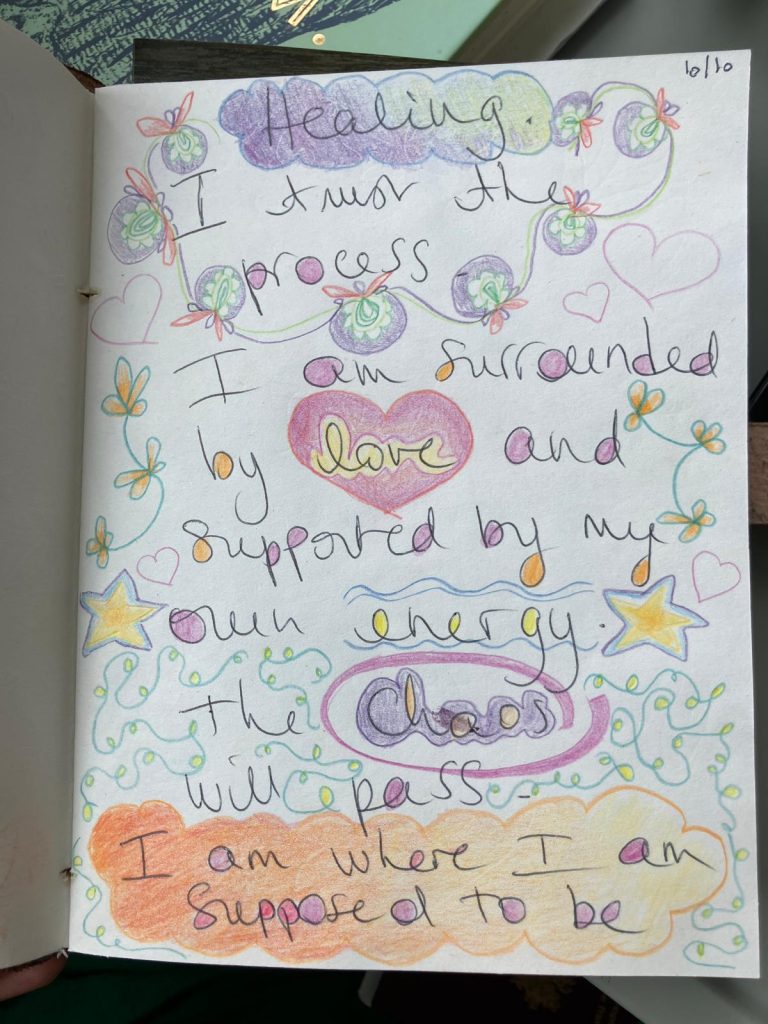 10/10
Healing.
I trust the
process.
I am surrounded
by love and
supported by my
own energy.
the chaos
will pass.
I am where I am
supposed to be